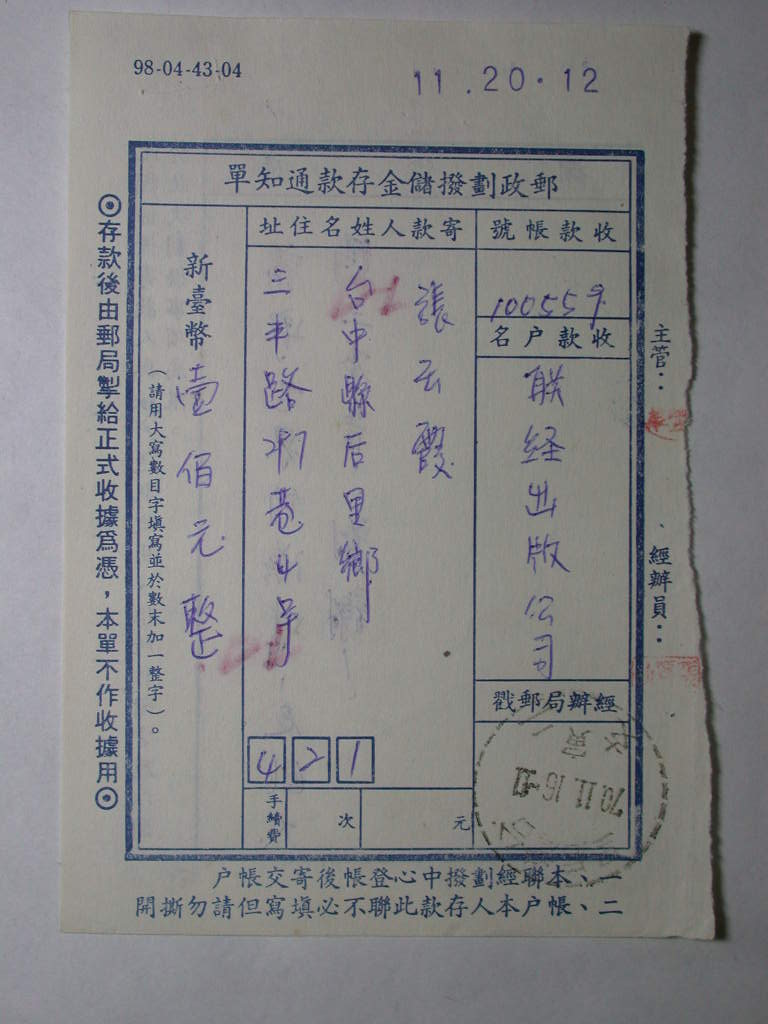 98-04-43-04
11.20.12
郵政劃撥儲金存款通知單
收款帳號
100559
收款户名
联経出版公司
經辦郵局戳
70.11.16
寄款人姓名住址
張云霞
台中縣后里鄉
三丰路297巷4号
421
手續費
次
元
新臺幣壹佰元整
(請用大寫數目字填寫並於數末加一整字)。
主管:
經辦員:
◎存款後由郵局掣給正式收據為憑,本單不作收據用◎
一、本聯經劃撥中心登帳後寄交帳户
二、帳户本人存款此聯不必填寫但請勿撕開